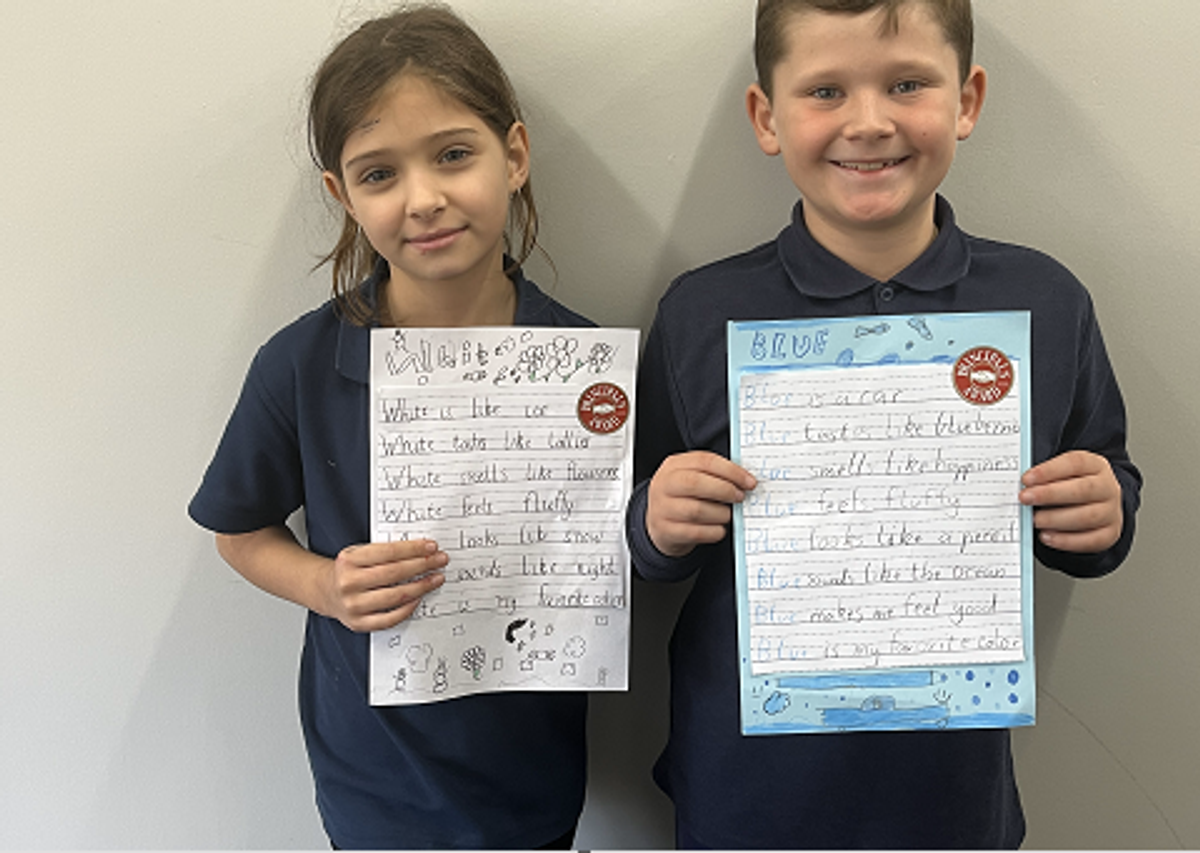 White is like ice
PRINCIPAL'S AWARD
White tasts like lollies
White smells like flowers
White feels fluffy
looks like snow
like night
is my favorite colour
BLUE
PRINCIPAL'S AWARD
Blue is a car
Blue tastes like blueberries
Blue smells like happiness
Blue feels fluffy
Blue looks like a pencil
Blue sounds like the ocean
Blue makes me feel good
Blue is my favorite color